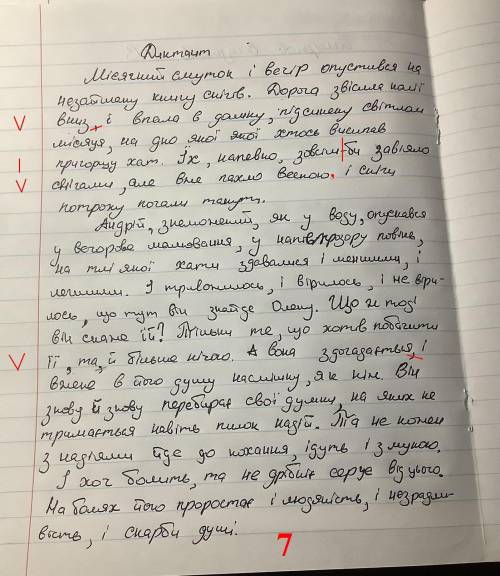 Диктант
Місячний смуток і вечір опустився на
незайману книгу снігів. Дорога звісила налі
вниз, і впала в долину, підсинену світлом
місяця, на дно якої якої хтось висипав
пригорщу хат. Їх, напевно, зовсім би завіяло
снігами, але вже пахло весною, і сніги
потроху почали танути.
Андрій, знеможений, як у воду, опускався
у вечорове малювання, у напівпрозору повінь,
на тлі якої хати здавалися і меншими, і
легшими. І тривожилось, і вірилось, і не віри-
лось, що тут він знайде Олену. Що ж тоді
він скаже їй? Тільки те, що хотів побачити
її, та й більше нічого. А вона здогадається, і
вжене в його душу насмішку, як ніж. Він
знову й знову перебирає свої думки, на яких не
тримається навіть пилок надій. Та не кожен
з надіями йде до кохання, ідуть і з мукою.
І хоч болить, та не дрібніє серце від цього.
На болях його проростає і людяність, і незрадли-
вість, і скарби душі.
7